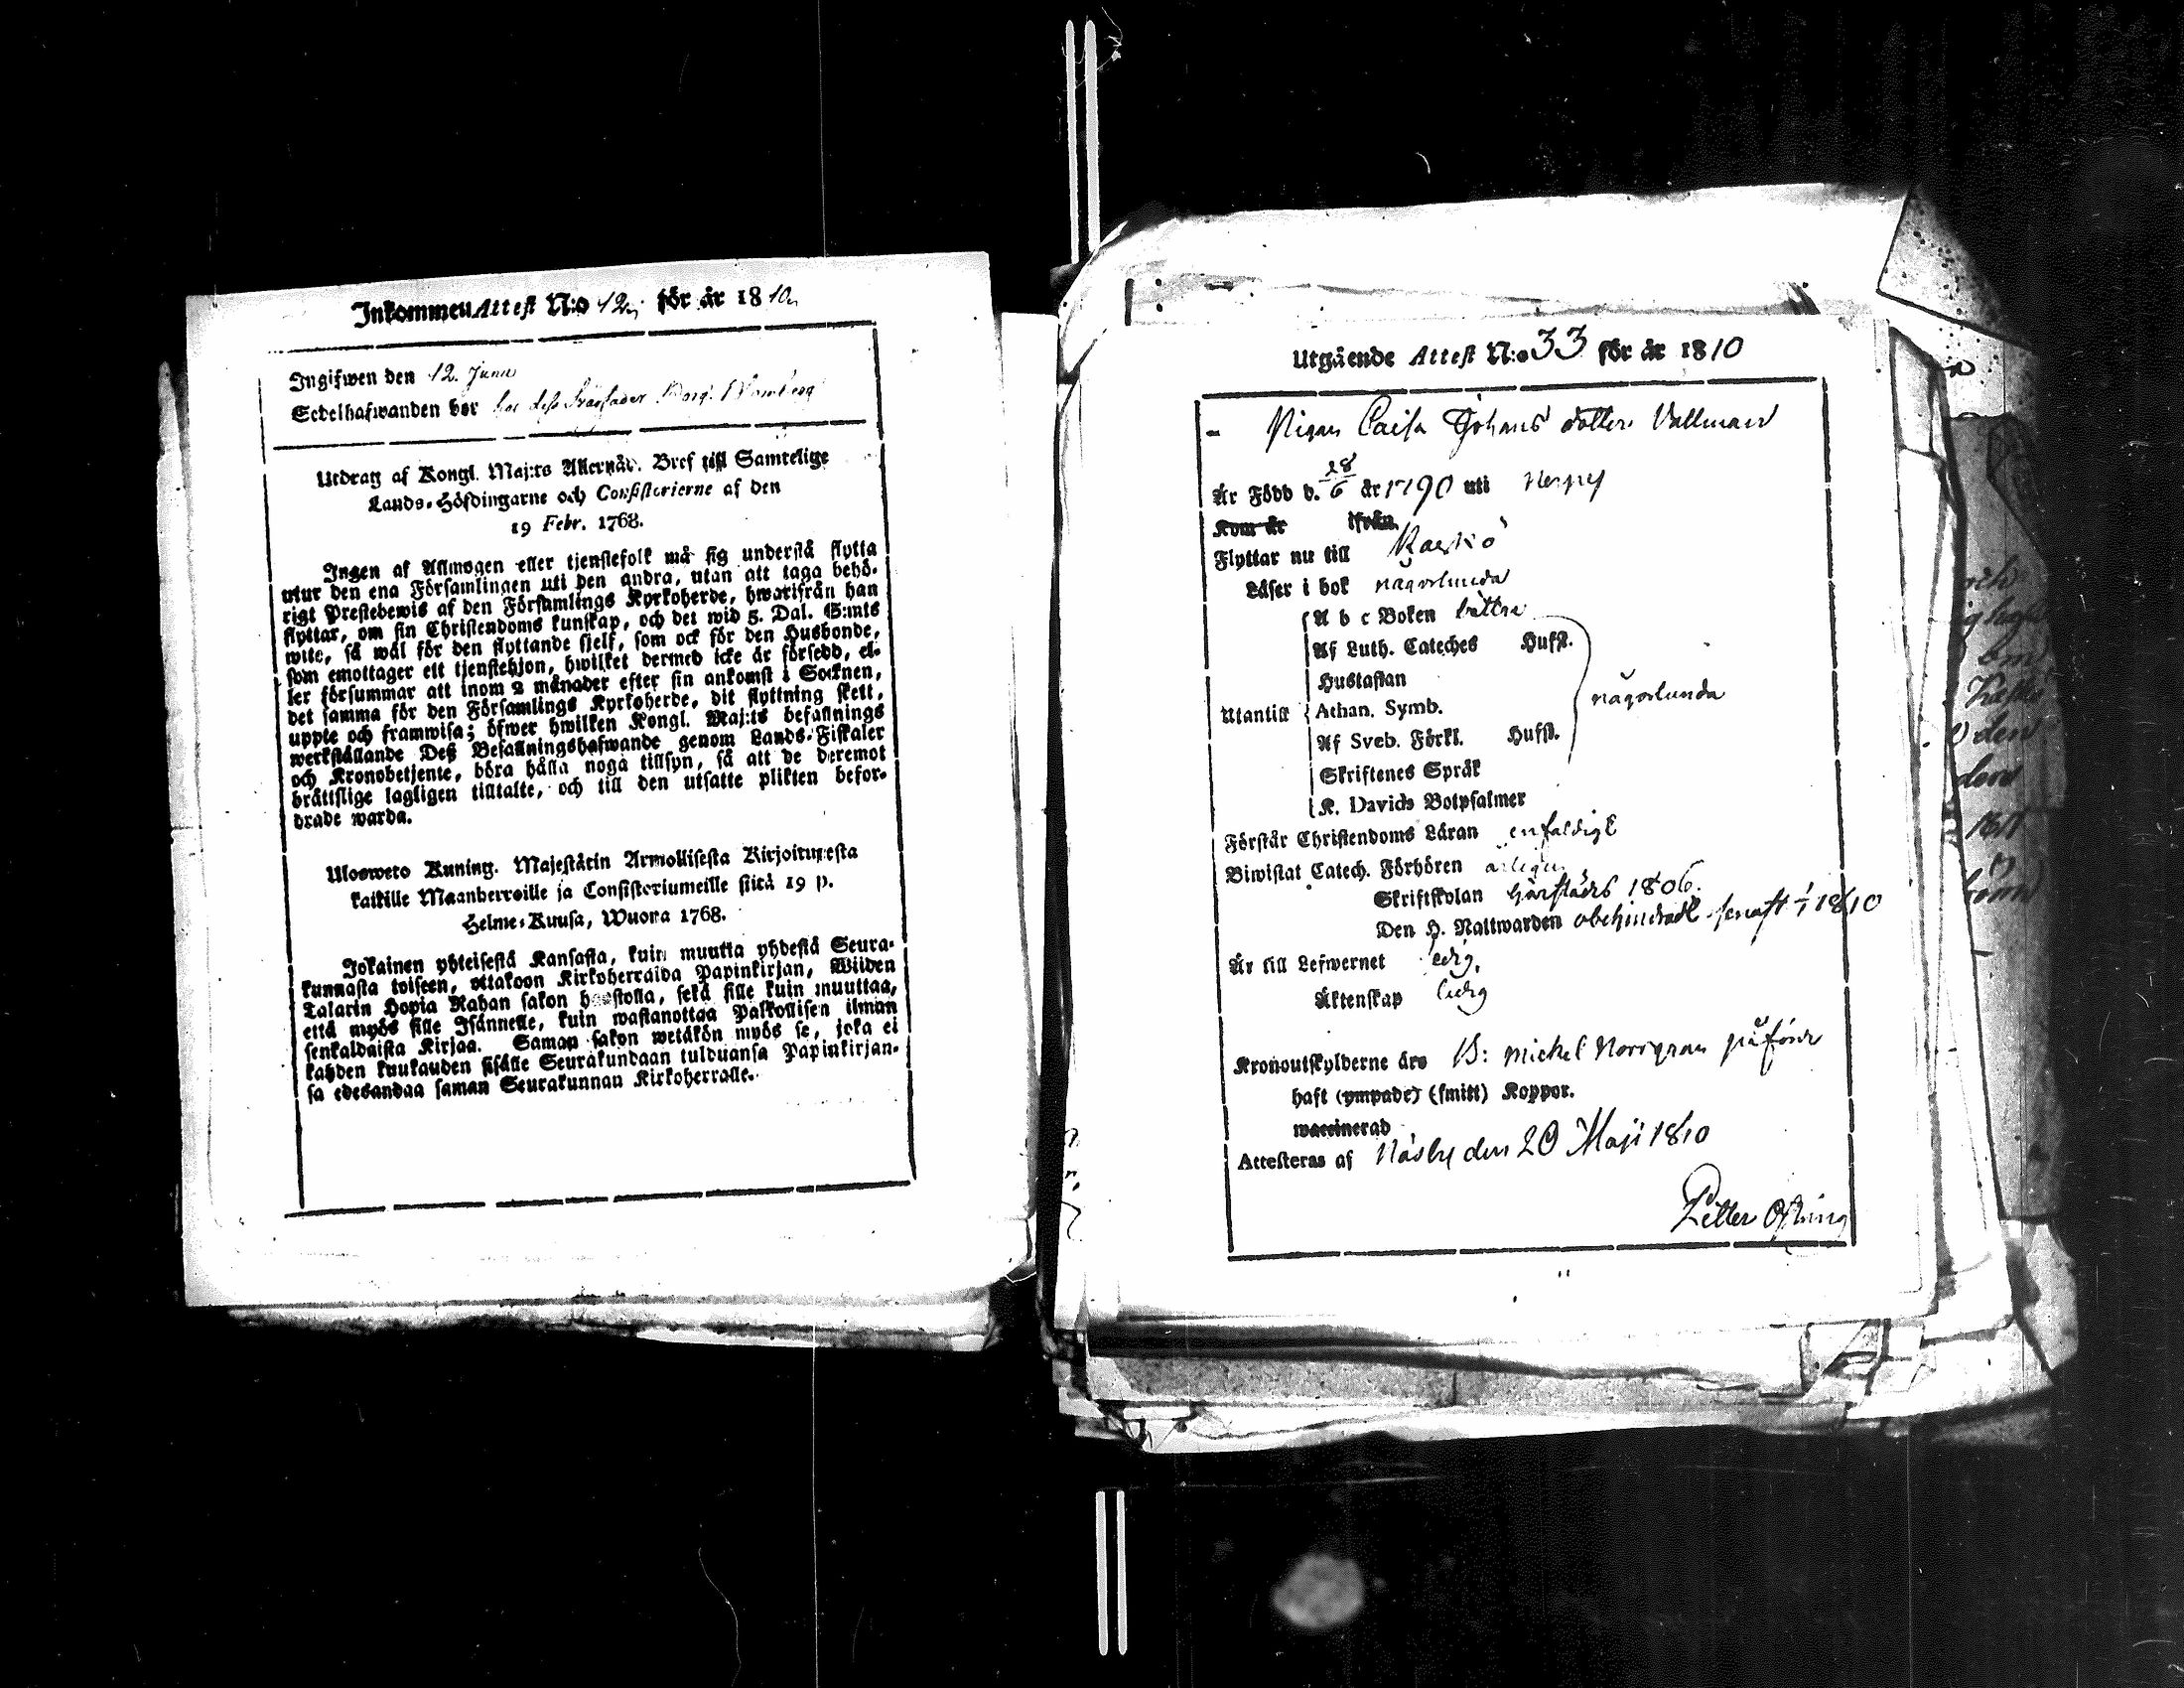 Inkommen Attest N:o 12 för år 1810
Ingifwen den 12. Junii
Sedelhafwanden bor hos
Utdrag af Kongl. Maj:ts Allernåd. Bref till Samtelige
Lands-Höfdingarne och Consistorierne af den
19 Febr. 1768.
Ingen af Allmogen eller tjenstefolk må sig understå flytta
utur den ena Församlingen uti den andra, utan att taga behö-
rigt Prestebewis af den Församlings Kyrkoherde, hwarifrån han
flyttar, om sin Christendoms kunskap, och det wid 5. Dal. S:mts
wite, så wäl för den flyttande sjelf, som ock för den Husbonde,
som emottager ett tjenstehjon, hwilket dermed icke är försedd, el-
ler försummar att inom 2 månader efter sin ankomst i Socknen,
det samma för den Församlings Kyrkoherde, dit flyttning skett,
uppte och framwisa; öfwer hwilken Kongl. Maj:ts befallnings
werkställande Deß Befallningshafwande genom Lands-Fiskaler
och Kronobetjente, böra hålla noga tillsyn, så att de deremot
bråttslige lagligen tilltalte, och till den utsatte plikten befor-
drade warda.
Ulosweto Kuning. Majestätin Armollisesta Kirjoituxesta
kaikille Maanherroille ja Consistoriumeille siitä 19 p.
Helme-Kuusa, Wuonna 1768.
Jokainen yhteisestä Kansasta, kuin muutta yhdestä Seura-
kunnasta toiseen, ottakoon Kirkoherralda Papinkirjan, Wiiden
Talarin Hopia Rahan sakon haastolla, sekä sille kuin muuttaa,
että myös sille Isännelle, kuin wastanottaa Palkollisen ilman
senkaldaista Kirjaa. Saman sakon wetäkön myös se, joka ei
kahden kuukauden sisälle Seurakundaan tulduansa Papinkirjan-
sa edesandaa saman Seurakunnan Kirkoherralle.
Utgående Attest N:o 33 för år 1810
Pigan Caisa Johans dotter Vallman
Är Född d. 28/6 år 1790 uti Nerpes
Kom år ifrån
Flyttar nu till Kaskö
Läser i bok någorlunda
A b c Boken bättre
Af Luth. Cateches Husfl.
Hustaflan
Utantill Athan. Symb. någorlunda
Af Sveb. Förkl. Husfl.
Skriftenes Språk
K. Davids Botpsalmer
Förstår Christendoms Läran enfaldigt
Biwistat Catech. Förhören årligen
Skriftskolan härstädes 1806.
Den H. Nattwarden obehindradt senast 1/1 1810
Är till Lefwernet ledig,
Äktenskap ledig
Kronoutskylderne äro B: Michel Norrgran påförde
haft (ympade) (smitt) Koppor.
waccinerad
Attesteras af Näsby den 20 Maji 1810
Petter